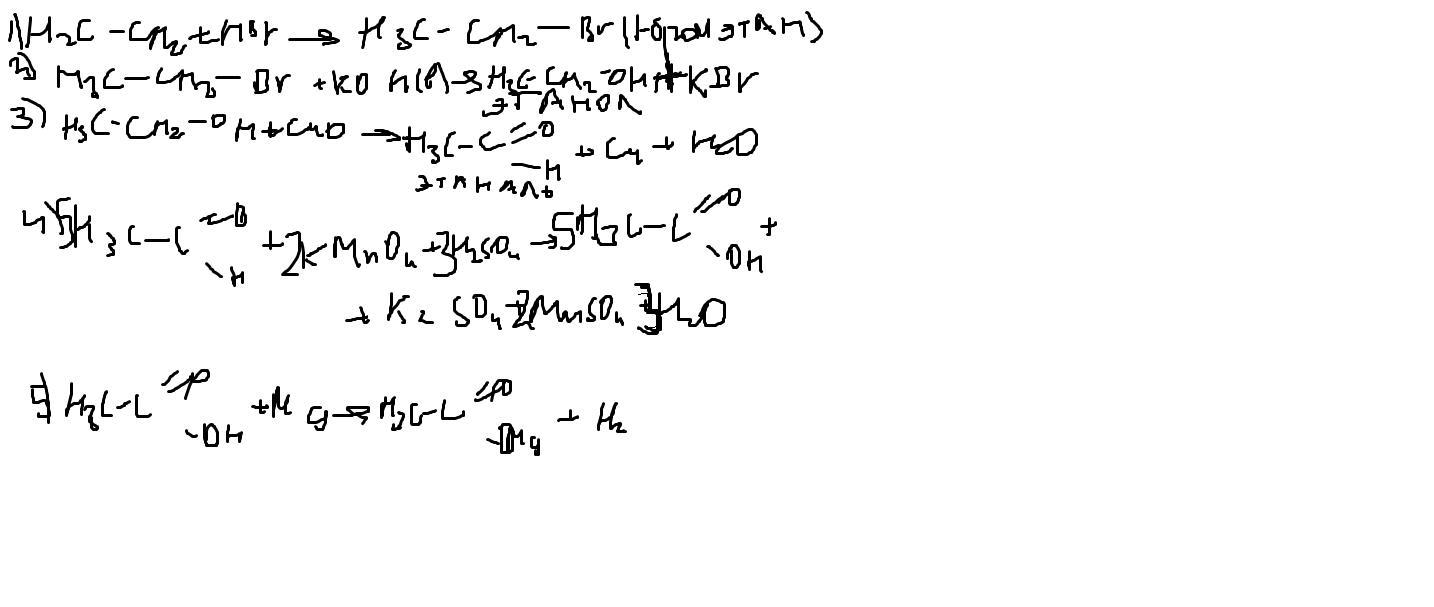 1) H₂C-CH₂+HBr → H₃C-CH₂-Br (бромэтан)
2) H₃C-CH₂-Br +KOH(р) → H₃C-CH₂-OH+KBr
этанол
3) H₃C-CH₂-OH+CuO → H₃C-C=O -H + Cu + H₂O
этаналь
4) 5H₃C-C=O -H +2KMnO₄+3H₂SO₄ → 5H₃C-C=O -OH +
+ K₂SO₄+2MnSO₄ 3H₂O
5) H₃C-C=O -OH +Mg → H₃C-C=O -OMg + H₂